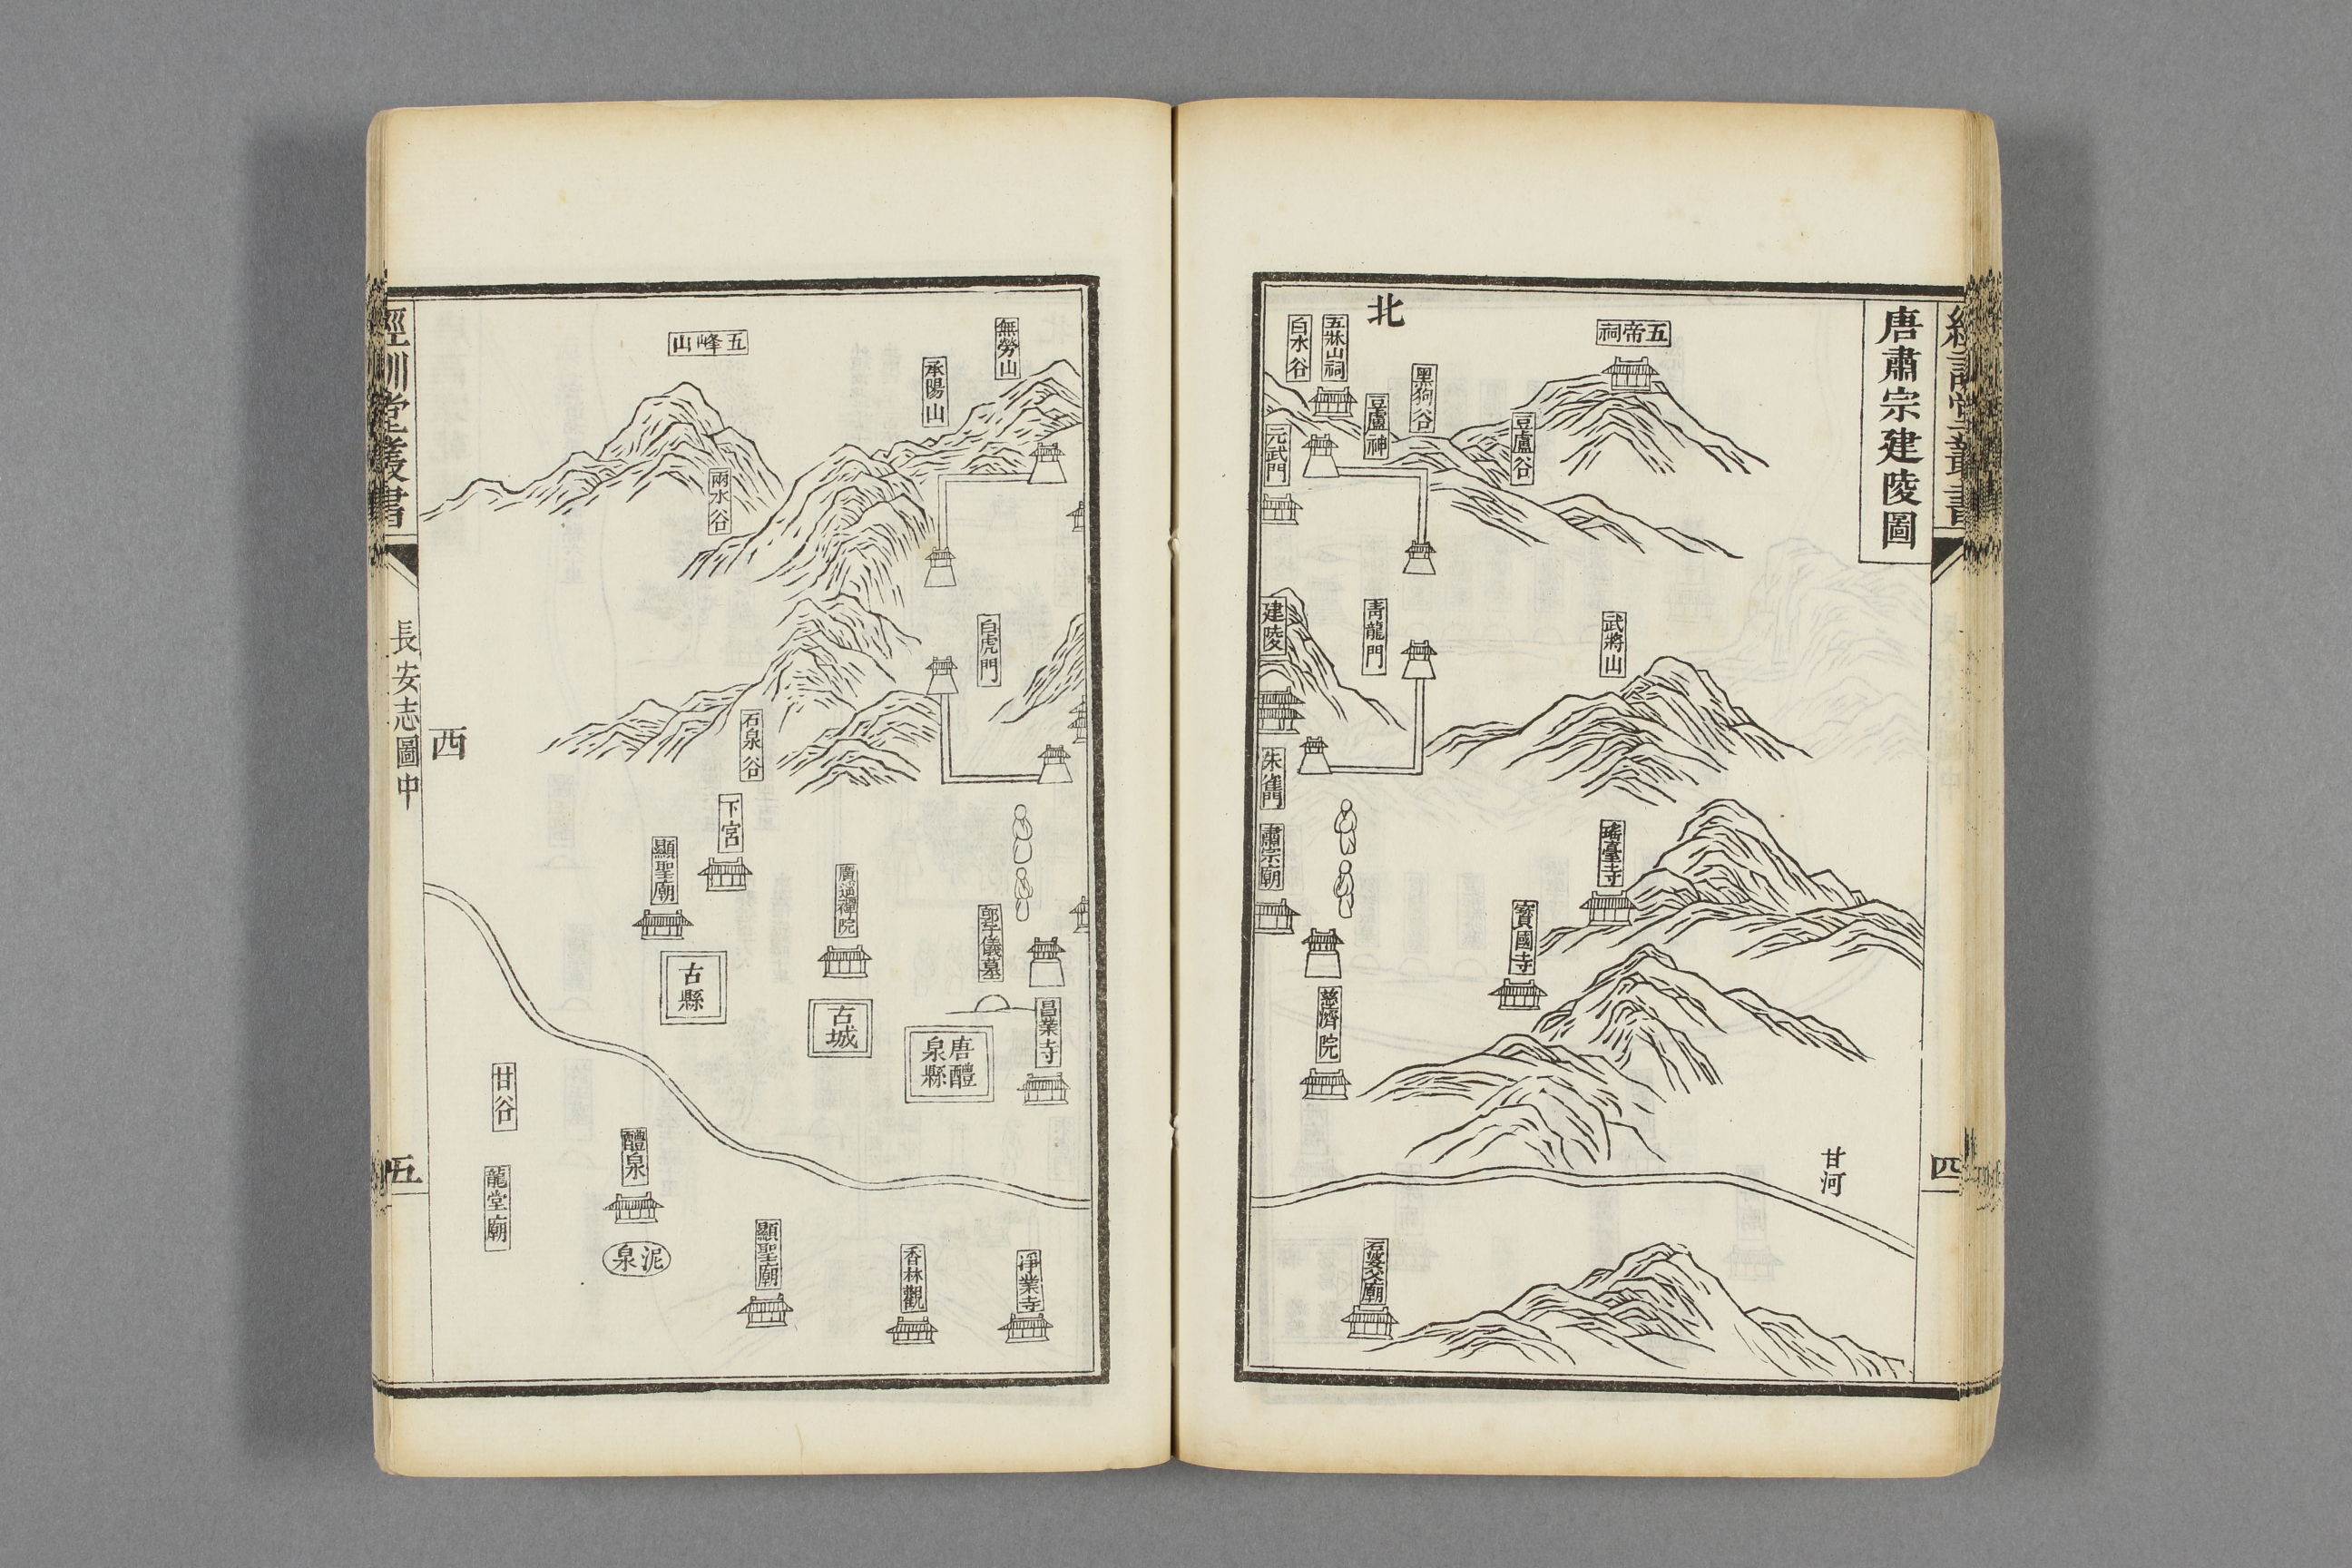 經訓堂叢書
四
唐肅宗建陵圖
北
五帝祠
豆盧谷
黑狗谷
豆盧神
五牀山祠
白水谷
元武門
武將山
青龍門
建陵
朱雀門
肅宗廟
瑤臺寺
寶國寺
慈濟院
甘河
石婆父廟
無勞山
承陽山
五峰山
兩水谷
白虎門
石泉谷
下宮
顯聖廟
廣濟禪院
郭子儀墓
古縣
古城
唐醴泉縣
昌業寺
甘谷
龍堂廟
醴泉
泥泉
顯聖廟
香林觀
淨業寺
西
經訓堂叢書
長安志圖中
五